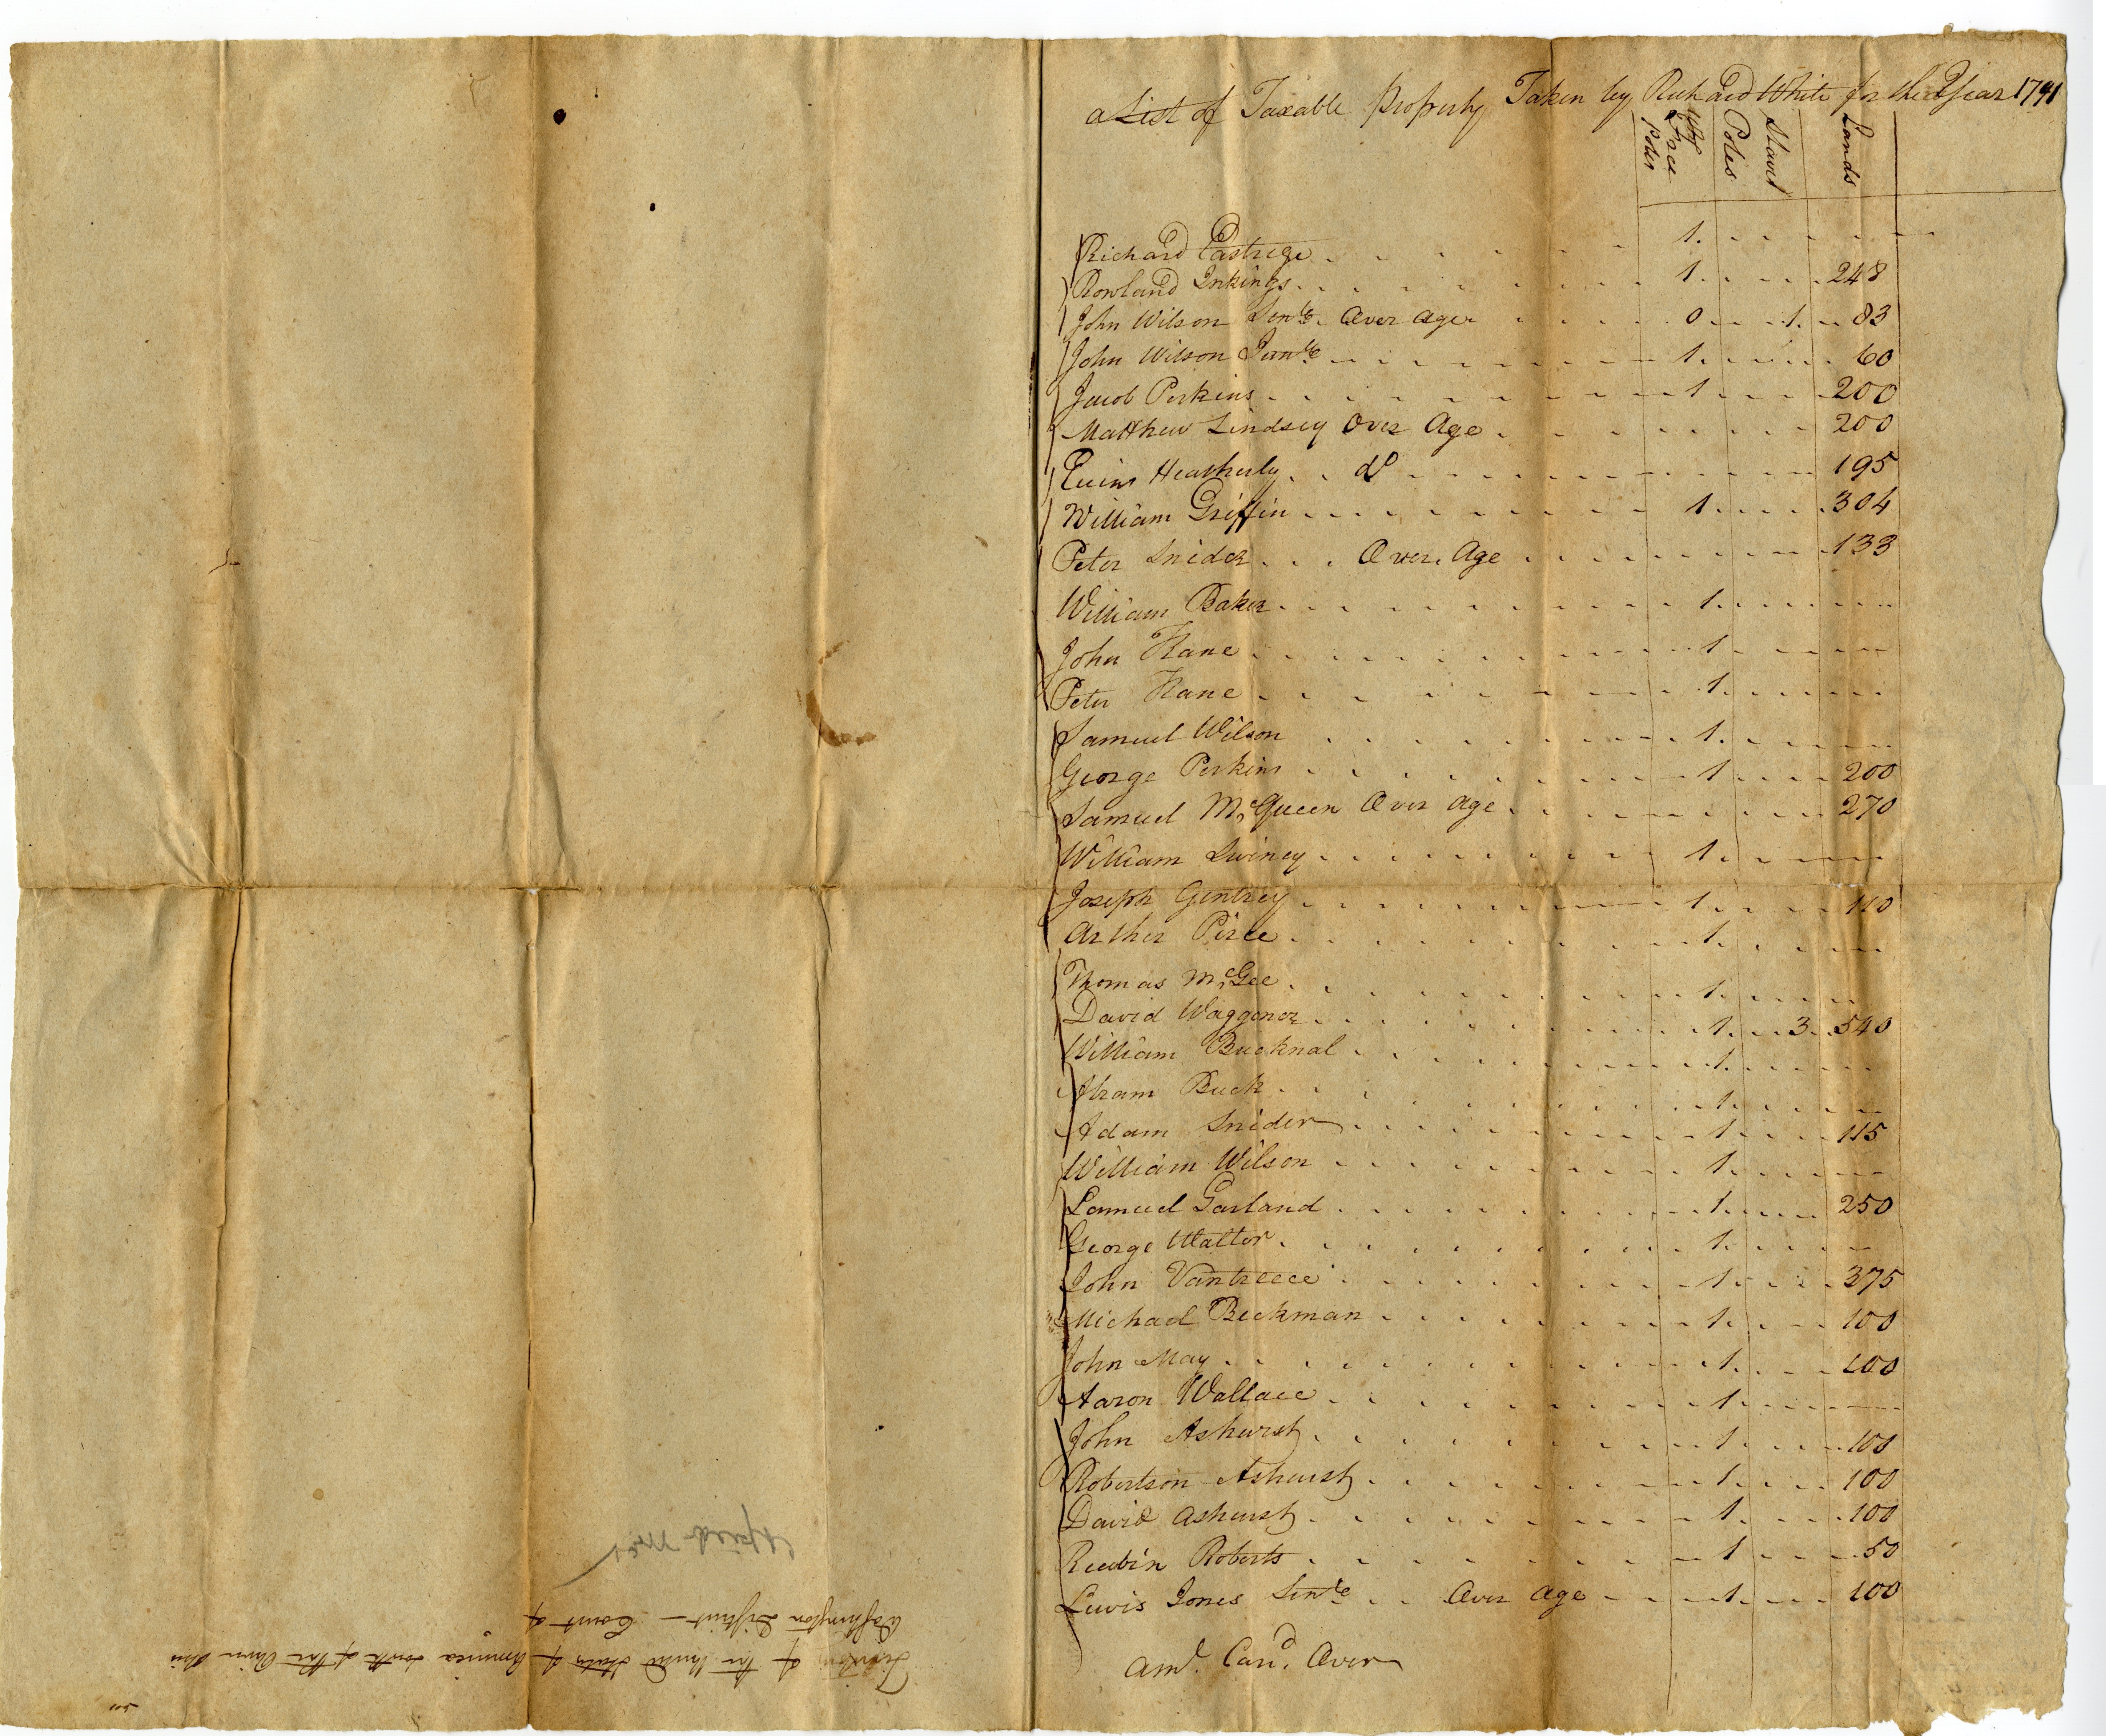 a List of Taxable Property Taken by Richard White for the Year 1791
Free Poles
Poles
Slaves
Lands
Richard Eastrege 1.
Rowland Inkings 1. 248
John Wilson Senr. Over age 0 1 83
John Wilson Junr. 1. 60
Jacob Perkins 1 200
Matthew Lindsey Over Age 200
Heatherly do 195
William Griffin 1. 304
Peter Snider Over Age 133
William Baker 1.
John Kane 1
Peter Kane 1.
Samuel Wilson 1.
George Perkins 1 200
Samuel McQueen Over age 270
William Swiney 1.
Joseph Gentrey 1. 110
Arther Pirce 1.
Thomas McGee 1.
David Waggoner 1. 3. 540
William Bucknal 1.
Abram Buck 1.
Adam Snider 1. 115
William Wilson 1.
Lamuel Garland 1. 250
George Walter 1.
John Vantreece 1. 375
Michael Beckman 1. 100
John May 1. 100
Aaron Wallace 1.
John Ashurst 1. 100
Robertson Ashurst 1. 100
David Ashurst 1. 100
Reubin Roberts 1 50
Lewis Jones Senr. Over age 1. 100
amt. Card. Over
Territory of the United States of America South of the River Ohio
Washington District — Court of